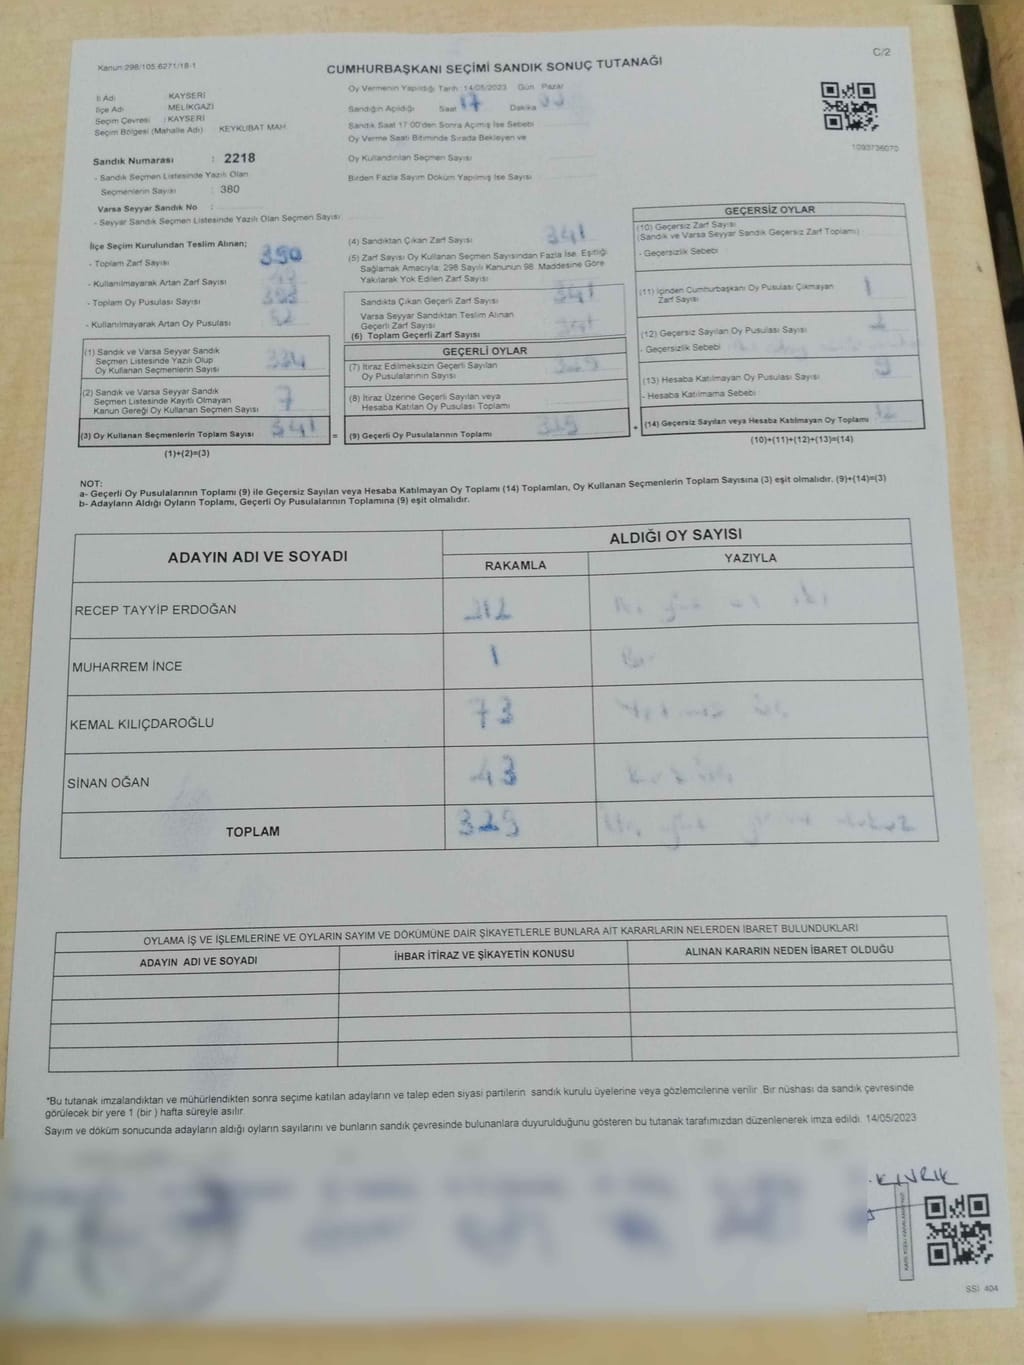 Kanun:298/105.6271/18-1
C/2
CUMHURBAŞKANI SEÇİMİ SANDIK SONUÇ TUTANAĞI
İl Adı KAYSERİ
İlçe Adı MELİKGAZİ
Seçim Çevresi : KAYSERİ
Seçim Bölgesi (Mahalle Adı) KEYKUBAT MAH.
Sandık Numarası : 2218
- Sandık Seçmen Listesinde Yazılı Olan
Seçmenlerin Sayısı : 380
Varsa Seyyar Sandık No :
- Seyyar Sandık Seçmen Listesinde Yazılı Olan Seçmen Sayısı
Oy Vermenin Yapıldığı Tarih :14/05/2023 Gün Pazar
Sandığın Açıldığı Saat 17 Dakika
Sandık Saat 17:00'den Sonra Açımış İse Sebebi
Oy Verme Saati Bitiminde Sırada Bekleyen ve
Oy Kullandırılan Seçmen Sayısı
Birden Fazla Sayım Döküm Yapılmış İse Sayısı
1093736070
İlçe Seçim Kurulundan Teslim Alınan;
- Toplam Zarf Sayısı 390
- Kullanılmayarak Artan Zarf Sayısı
- Toplam Oy Pusulası Sayısı
- Kullanılmayarak Artan Oy Pusulası
(1) Sandık ve Varsa Seyyar Sandık
Seçmen Listesinde Yazılı Olup
Oy Kullanan Seçmenlerin Sayısı 334
(2) Sandık ve Varsa Seyyar Sandık
Seçmen Listesinde Kayıtlı Olmayan
Kanun Gereği Oy Kullanan Seçmen Sayısı 7
(3) Oy Kullanan Seçmenlerin Toplam Sayısı 341 =
(1)+(2)=(3)
(4) Sandıktan Çıkan Zarf Sayısı 341
(5) Zarf Sayısı Oy Kullanan Seçmen Sayısından Fazla İse, Eşitliği
Sağlamak Amacıyla; 298 Sayılı Kanunun 98. Maddesine Göre
Yakılarak Yok Edilen Zarf Sayısı
Sandıkta Çıkan Geçerli Zarf Sayısı 341
Varsa Seyyar Sandıktan Teslim Alınan
Geçerli Zarf Sayısı
(6) Toplam Geçerli Zarf Sayısı 341
GEÇERLİ OYLAR
(7) İtiraz Edilmeksizin Geçerli Sayılan
Oy Pusulalarının Sayısı 329
(8) İtiraz Üzerine Geçerli Sayılan veya
Hesaba Katılan Oy Pusulası Toplamı
(9) Geçerli Oy Pusulalarının Toplamı 329 +
GEÇERSİZ OYLAR
(10) Geçersiz Zarf Sayısı
(Sandık ve Varsa Seyyar Sandık Geçersiz Zarf Toplamı)
- Geçersizlik Sebebi
(11) İçinden Cumhurbaşkanı Oy Pusulası Çıkmayan
Zarf Sayısı 1
(12) Geçersiz Sayılan Oy Pusulası Sayısı
- Geçersizlik Sebebi
(13) Hesaba Katılmayan Oy Pusulası Sayısı 9
- Hesaba Katılmama Sebebi
(14) Geçersiz Sayılan veya Hesaba Katılmayan Oy Toplamı 12
(10)+(11)+(12)+(13)=(14)
NOT:
a- Geçerli Oy Pusulalarının Toplamı (9) ile Geçersiz Sayılan veya Hesaba Katılmayan Oy Toplamı (14) Toplamları, Oy Kullanan Seçmenlerin Toplam Sayısına (3) eşit olmalıdır. (9)+(14)=(3)
b- Adayların Aldığı Oyların Toplamı, Geçerli Oy Pusulalarının Toplamına (9) eşit olmalıdır.
ADAYIN ADI VE SOYADI
ALDIĞI OY SAYISI
RAKAMLA YAZIYLA
RECEP TAYYİP ERDOĞAN 212
MUHARREM İNCE 1 Bir
KEMAL KILIÇDAROĞLU 73
SİNAN OĞAN 43
TOPLAM 329
OYLAMA İŞ VE İŞLEMLERİNE VE OYLARIN SAYIM VE DÖKÜMÜNE DAİR ŞİKAYETLERLE BUNLARA AİT KARARLARIN NELERDEN İBARET BULUNDUKLARI
ADAYIN ADI VE SOYADI İHBAR İTİRAZ VE ŞİKAYETİN KONUSU ALINAN KARARIN NEDEN İBARET OLDUĞU
*Bu tutanak imzalandıktan ve mühürlendikten sonra seçime katılan adayların ve talep eden siyasi partilerin sandık kurulu üyelerine veya gözlemcilerine verilir. Bir nüshası da sandık çevresinde
görülecek bir yere 1 (bir ) hafta süreyle asılır.
Sayım ve döküm sonucunda adayların aldığı oyların sayılarını ve bunların sandık çevresinde bulunanlara duyurulduğunu gösteren bu tutanak tarafımızdan düzenlenerek imza edildi. 14/05/2023
KIVRIK
SSI 404